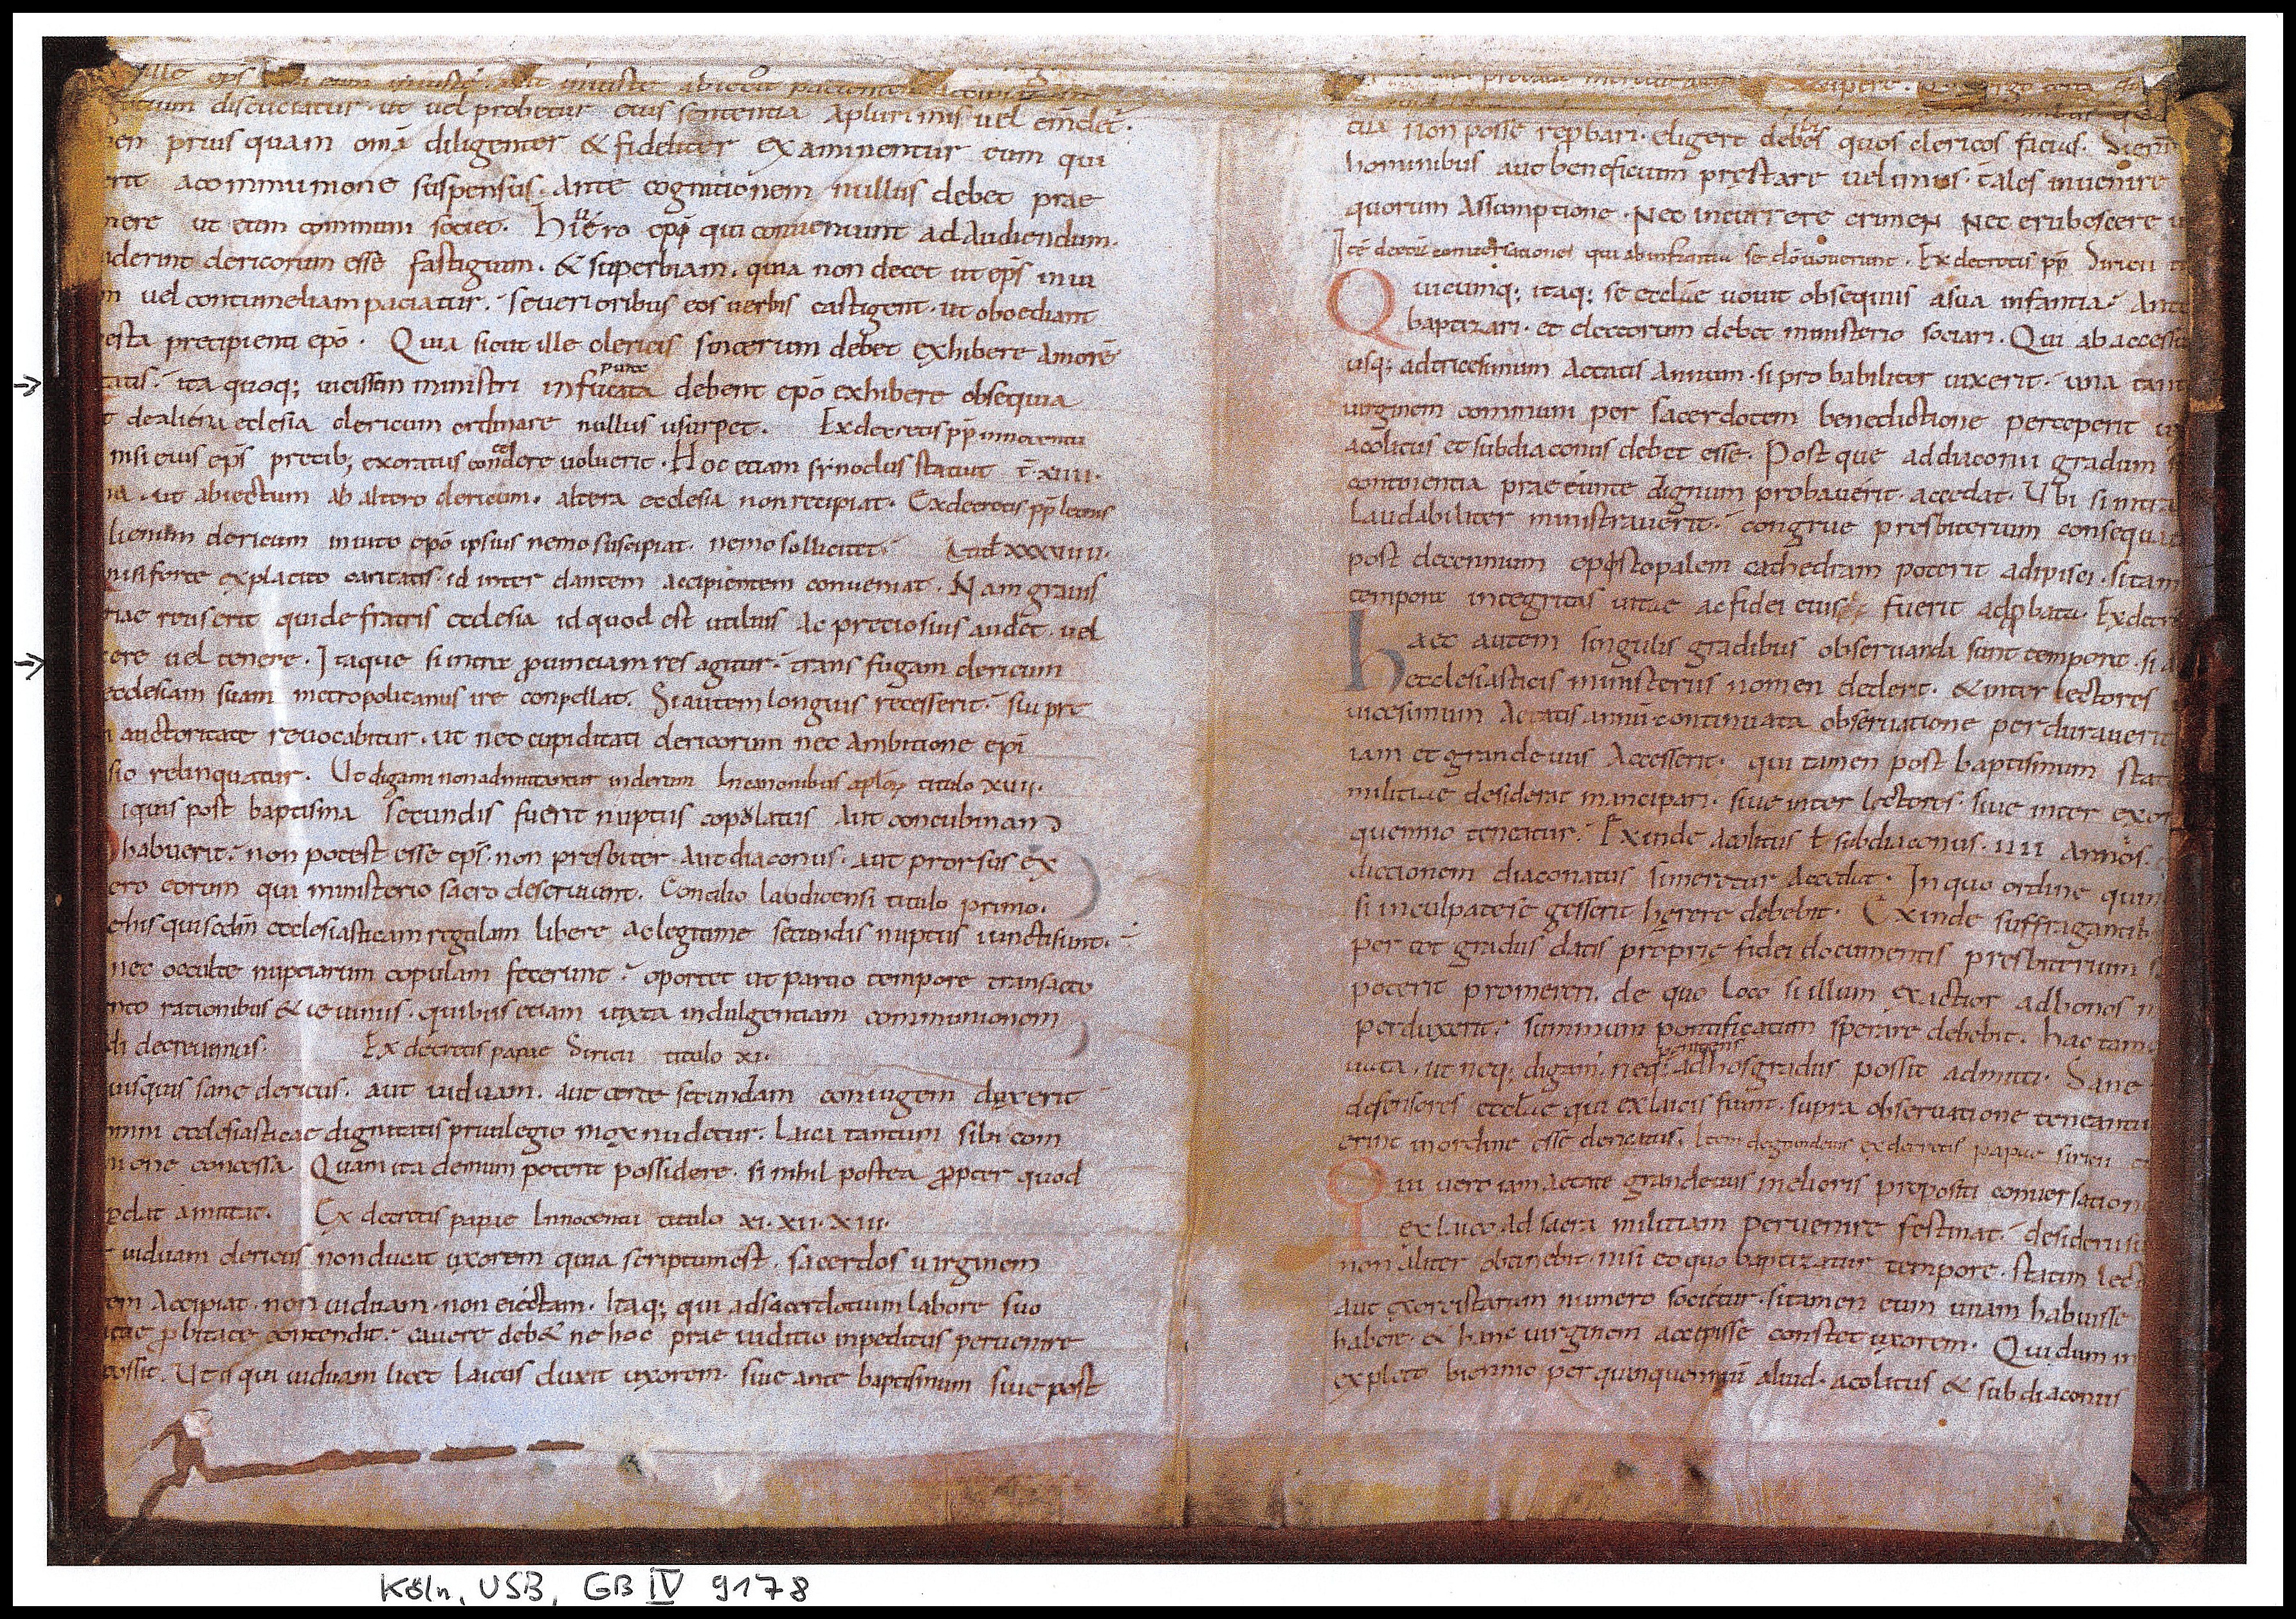 ille eps
discutiatur · ut uel probetur eius sententia apluri mis uel emdet ·
prius quam oma diligenter & fideliter examinentur eum qui
acommunione suspensus · ante cognitionem nullus debet prae
ut eum communi societ · hi uero epi qui conueniunt ad audiendum ·
clericorum esse fastigium · & superbiam · quia non decet ut eps iniu
uel contumeliam paciatur · seuerioribus eos uerbis castigent · ut oboediant
precipienti epo · Quia sicut ille clericis sincerum debet exhibere amore
ita quoq; uicissim ministri infucata pure debent epo exhibere obsequia
dealiena eclesia clericum ordinare nullus usurpet · Exdecretis pp innocentii
nisi eius eps precib; exoratus concedere uoluerit · Hoc etiam synodus statuit t xiiii ·
ut abiectum ab altero clericum · altera ecclesia non recipiat · Exdecretis pp leonis
clericum inuito epo ipsius nemo suscipiat · nemo sollicitet · Titul xxxuiiii ·
nisi forte explacito caritatis · id inter dantem accipientem conueniat · Nam grauis
quide fratris ecclesia id quod est utilius ac preciosius audet · uel
uel tenere · Itaque si intra puinciam res agitur · trans fugam clericum
ecclesiam suam metropolitanus ire conpellat · Si autem longius recesserit · siu pre
auctoritate reuocabitur · ut nec cupiditati clericorum nec ambitione epi
relinquatur · Ut digami non admittantur inclerum In canonibus aplor titulo xuii ·
iquis post baptisma secundis fuerit nuptus copolatus aut concubinam
habuerit · non potest esse eps · non presbiter · aut diaconus · aut prorsus ex
eorum qui ministerio sacro deseruiunt · Concilio laudicensi titulo primo ·
ehis quisecdm ecclesiasticam regulam libere aclegitime secundis nuptiis iuncti sunt ·
nec occulte nuptiarum copulam fecerunt · oportet ut paruo tempore transacto
rationibus & ieiuniis · quibus etiam iuxta indulgentiam communionem
decreuimus · Ex decretis papae Siricii titulo xi ·
uisquis sane clericus · aut uiduam · aut certe secundam coniugem duxerit
ecclesiasticae dignitatis priuilegio mox nudetur · Laica tantum sibi com
concessa · Quam ita demum poterit possidere · si nihil postea ppter quod
amittat · Ex decretis papae Innocentii titulo xi · xii · xiii ·
uiduam clericus non ducat uxorem quia scriptum est · sacerdos uirginem
accipiat · non uiduam · non eiectam · Itaq; qui adsacerdotium labore suo
pbitate contendit · cauere deb& ne hoc prae iuditio inpeditus peruenire
possit · Ut is qui uiduam licet laicus duxit uxorem · siue ante baptismum siue post
non posse repbari · eligere debes quos clericos facias ·
hominibus aut beneficium prestare uelimus · tales inuenire
quorum assumptione · Nec incurrere crimen nec erubescere
Exdecretis pp Siricii
Quicumq; itaq; se ecclae uouit obsequiis asua infantia · Ante
baptizari · et lectorum debet ministerio sociari · Qui ab accessu
usq; adtricesimum aetatis annum · si probabiliter uixerit · una tan
uirginem communi per sacerdotem benedictione perceperit
acolitus et subdiaconus debet esse · Post que addiaconii gradum
continentia prae eunte dignum probauerit · accedat · Ubi si intra
laudabiliter ministrauerit · congrue presbiterum consequa
post decennium episcopalem cathedram poterit adipisci · si tam
tempore integritas uitae ac fidei eius fuerit adpbata · Exdecr
haec autem singulis gradibus obseruanda sunt tempore · si
ecclesiasticis ministeriis nomen dederit · & inter lectores
uicesimum aetatis annu continuata obseruatione perdurauerit
iam et grandeuus accesserit · qui tamen post baptismum stat
militiae desiderat mancipari · siue inter lectores · siue inter exor
quennio teneatur · Exinde acolitus ł subdiaconus · iiii annos
dictionem diaconatus si meretur accedat · In quo ordine quin
si inculpate se gesserit herere debebit · Exinde suffragantib
per tot gradus datis proprie fidei documentis presbiterum
poterit promereri · de quo loco si illum exactior adbonos
perduxerit · summum pontificatum sperare debebit · hac tam
ut neq; digam · neq; penitens adhos gradus possit admitti · Sane
defensores ecclae qui exlaicis fiunt · supra obseruatione teneantu
inordine esse clericatus · Item degrandeuis exdecretis papae siricii
Qui uero iam aetate grandeuus melioris propositi conuersation
exlaico ad sacra militiam peruenire festinat · desiderii su
non aliter obtinebit · nisi eo quo baptizatur tempore · statim lec
aut exorcistarum numero societur · si tamen eum unam habuisse
habere · & hanc uirginem accepisse constet uxorem · Qui dum in
expleto biennio per quinquennium aliud · acolitus & subdiaconus
Köln, USB, GB IV 9178